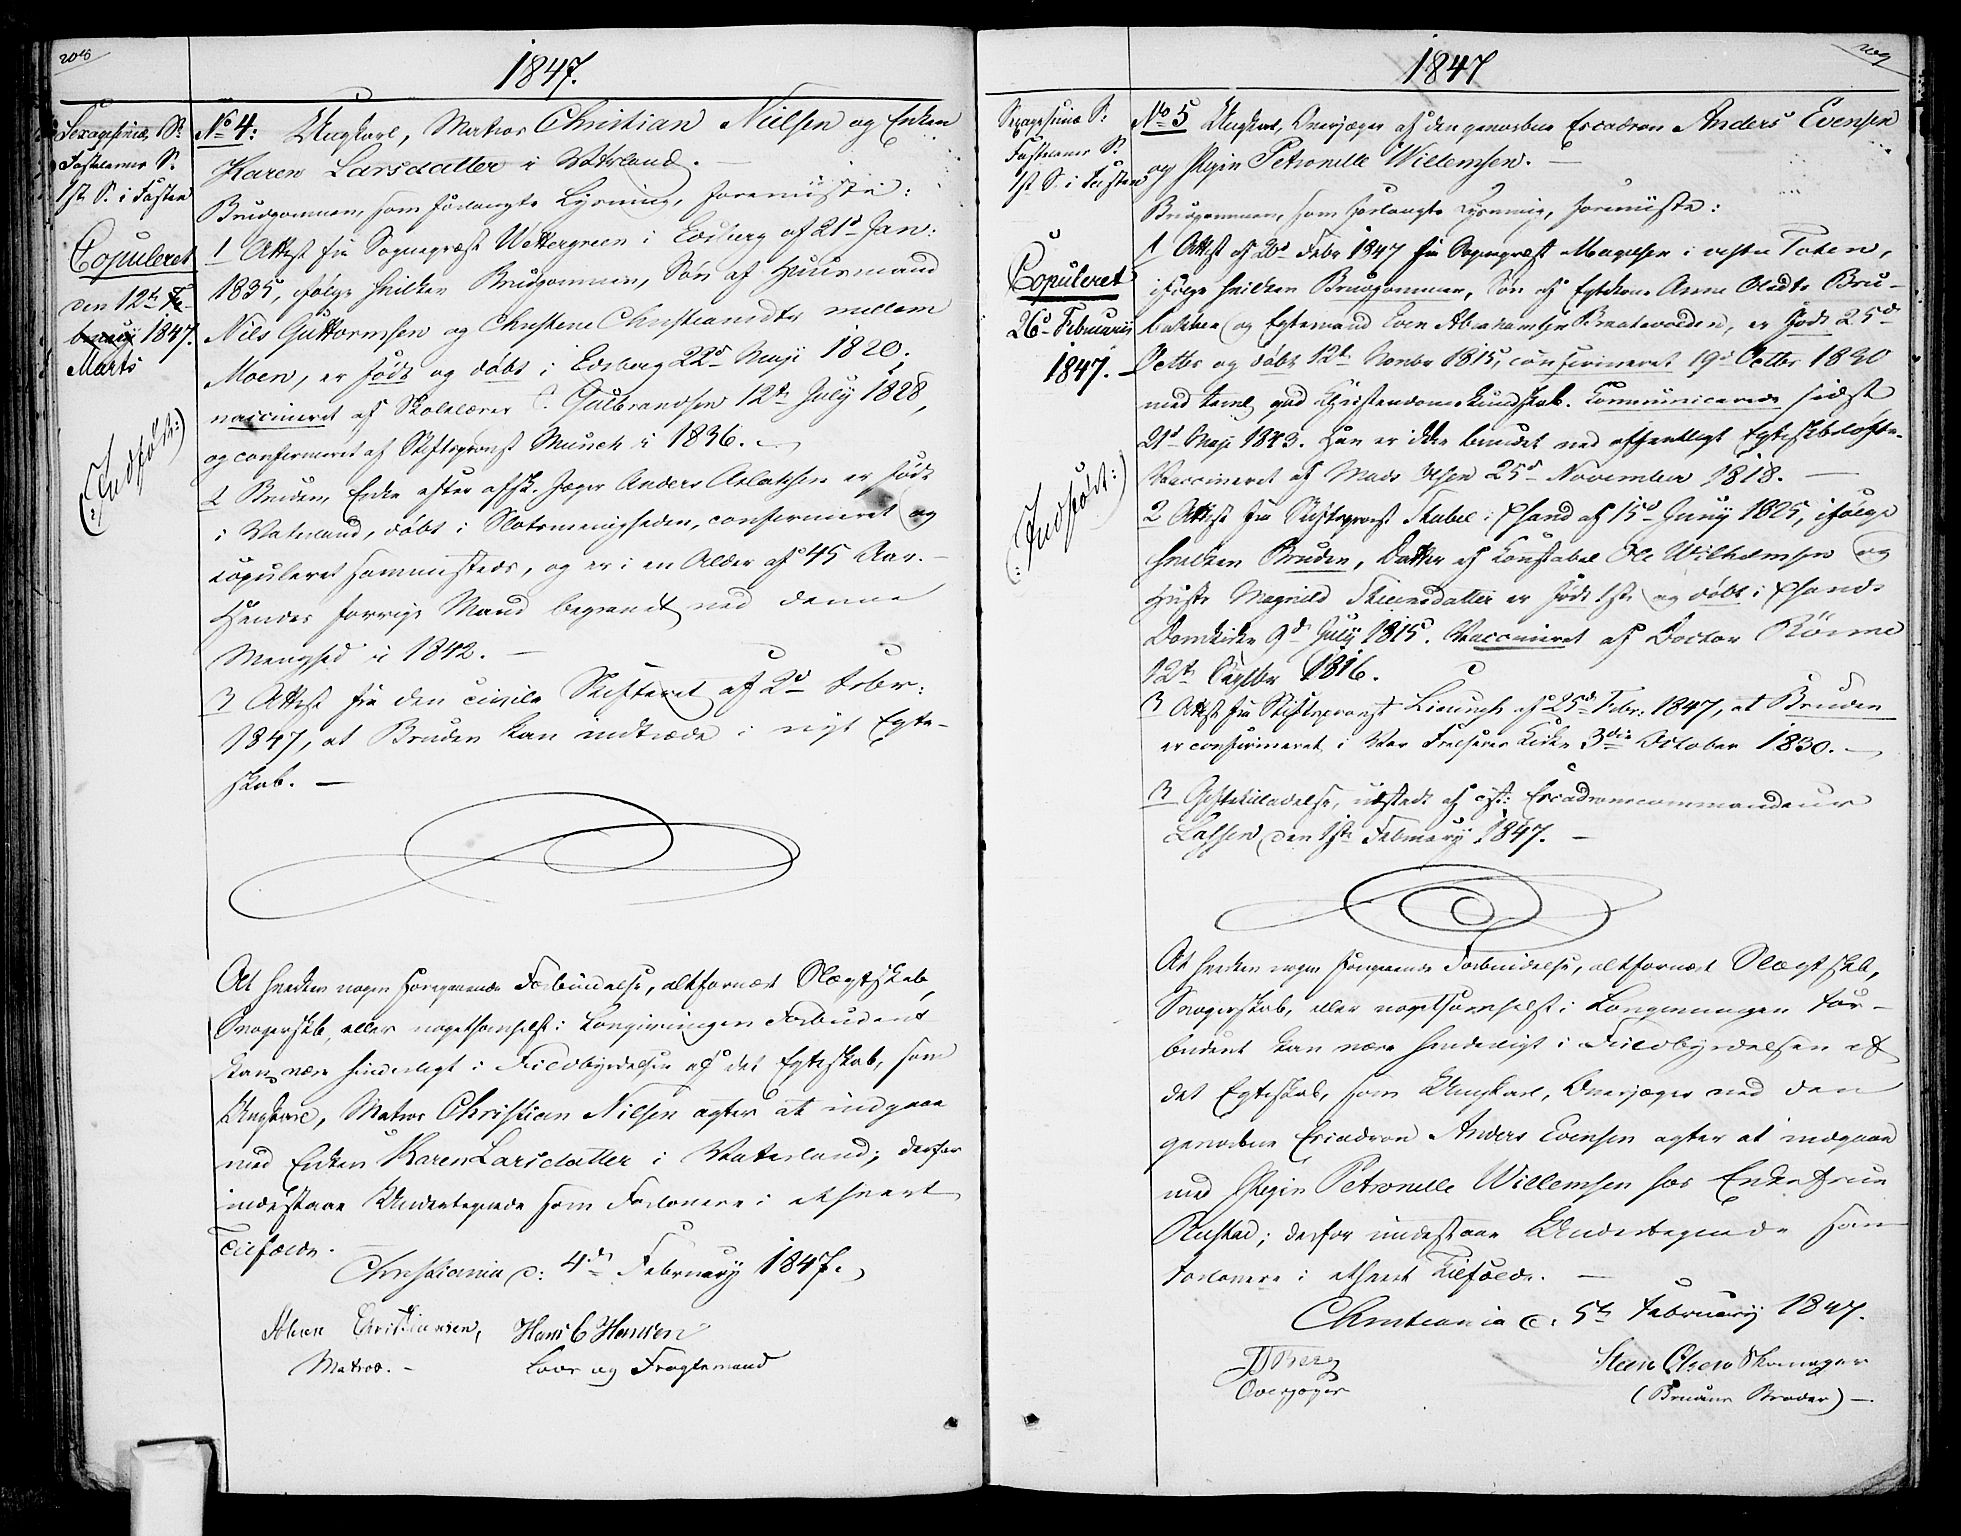 208
1847.
Sexagesima S.
Fastelavns S.
1ste S. i Fasten
Copuleret
den 12te Fe-
bruary 1847.
Marts
(: Indført :)
No 4: Ungkarl, Matros Christian Nielsen og Enken
Karen Larsdatter i Vaterland. —
Brudgommen, som forlangte Lysning, foreviiste:
1 Attest fra Sogneprest Wettergreen i Edsberg af 21d Jan:
1835, ifølge hvilken Brudgommen, Søn af Huusmand
Nils Guttormsen og Christene Christiansdtr mellem
Moen, er født og døbt i Edsberg 22d May 1820,
vaccineret af Skolelærer Gulbrandsen 12te July 1828,
og confirmeret af Stiftsprovst Munch i 1836. —
2 Bruden, Enke efter afsk. Jæger Anders Aslaksen er født
i Vaterland, døbt i Slotsmenigheden, confirmeret og
copuleret sammesteds, og er i en Alder af 45 Aar. —
Hendes forrige Mand begravet ved denne
Menighed i 1842. —
3 Attest fra den civile Skifteret af 2d Febr:
1847, at Bruden kan indtræde i nyt Egte-
skab. —
At hverken nogen foregaaende Forbindelse, altfornært Slægtskab,
Svogerskab, eller nogetsomhelst i Lovgivningen Forbudent
kan være hinderligt i Fuldbyrdelsen af det Egteskab, som
Ungkarl, Matros Christian Nilsen agter at indgaae
med Enken Karen Larsdatter i Vaterland; derfor
indestaae Undertegnede som Forlovere i ethvert
Tilfælde. —
Christiania d: 4de February 1847.
Christiansen, Hans C Hansen
Matros. — Lods og Fragtemand
209
1847
Sexagesima S:
Fastelavns S.
1ste S. i Fasten
Copuleret
26d February
1847. —
(: Indført :)
No 5 Ungkarl, Overjæger af den gevorbne Escadron Anders Evensen
og Pigen Petronelle Willemsen. —
Brudgommen, som forlangte Lysning, foreviiste:
1 Attest af 20d Febr 1847 fra Sogneprest Magelsen i vestre Toten,
ifølge hvilken Brudgommen, Søn af Egtekone Anne Olsdtr Bru-
bakken og Egtemand Even Abrahamsen Braatevolden, er født 25d
Octbr og døbt 12te Novbr 1815, confirmeret 19d Octbr 1830
med temlg god Christendomskundskab. Communicerede sidst
21d May 1843. Han er ikke bundet ved offentligt Egteskabsløfte.
Vaccineret af Mads Olsen 25d November 1818. —
2 Attest fra Stiftsprovst Thabel i Chsand af 15d Juny 1825, ifølge
hvilken Bruden, Datter af Constabel Ole Wilhelmsen og
Hustr Magnild Steensdatter er født 1ste og døbt i Chsands
Domkirke 9d July 1815. Vaccineret af Doctor Rönne
12te Septbr 1816.
3 Attest fra Stiftsprovst af 25d Febr: 1847, at Bruden
er confirmeret i Vor Frelsers Kirke 3die October 1830. —
3 Giftetilladelse, udstedt af Escadronscommandeur
Lassen den 1ste February 1847. —
At hverken nogen foregaaende Forbindelse, altfornært Slægtskab,
Svogerskab, eller nogetsomhelst i Lovgivningen For-
budent kan være hinderligt i Fuldbyrdelsen af
det Egteskab, som Ungkarl, Overjæger ved den
gevorbne Escadron Anders Evensen agter at indgaae
med Pigen Petronelle Willemsen hos Enkefrue
Rustad; derfor indestaae Undertegnede som
Forlovere i ethvert Tilfælde. —
Christiania d: 5te February 1847.
Berg Steen Olsen
Overjæger (Brudens Broder) —